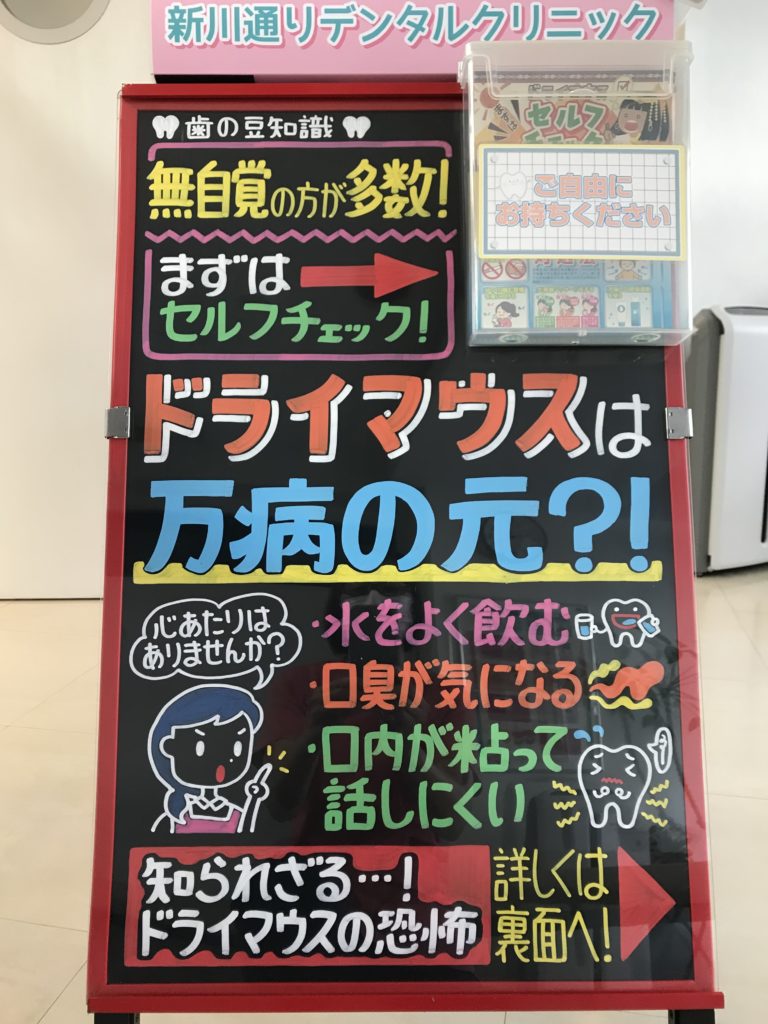 新川通りデンタルクリニック
歯の豆知識
無自覚の方が多数!
まずは
セルフチェック!
セルフ
チェック
ご自由に
お持ちください
ドライマウスは
万病の元?!
心あたりは
ありませんか?
・水をよく飲む
・口臭が気になる
・口内が粘って
話しにくい
知られざる…!
ドライマウスの恐怖
詳しくは
裏面へ!